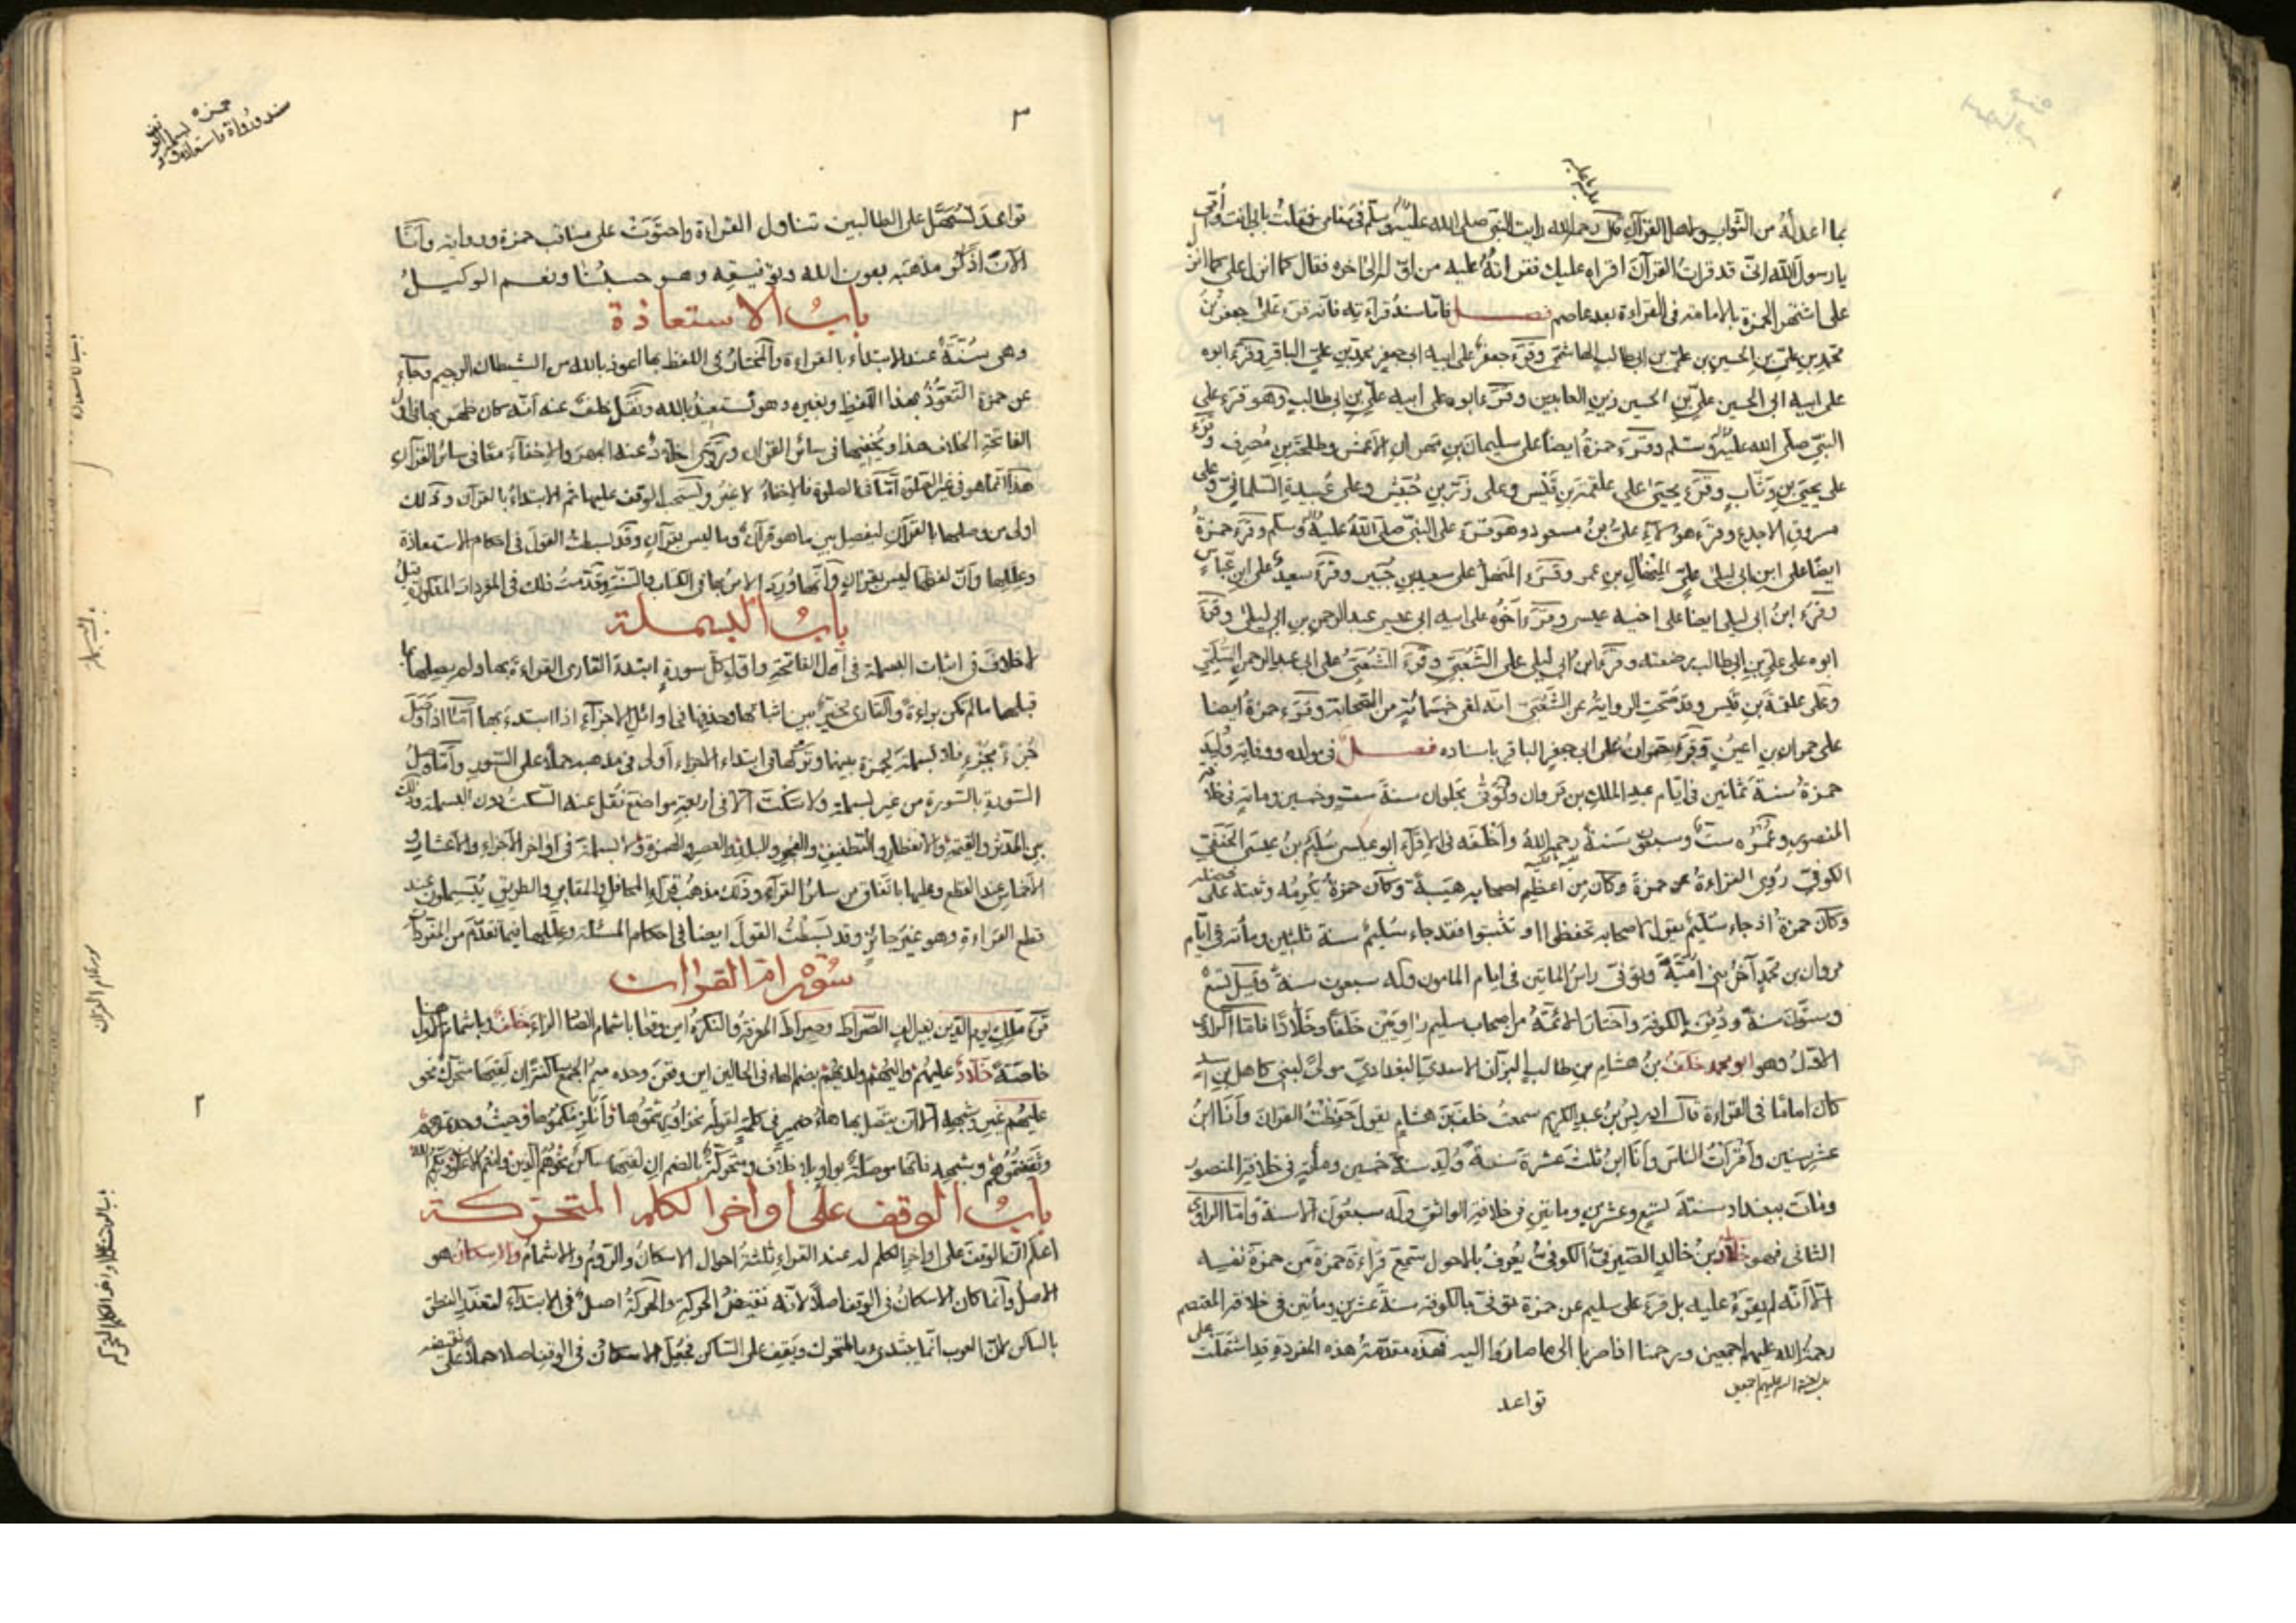 بما اعد الله من الثواب لاهل القرآن قال رحمه الله رايت النبي صلى الله عليه وسلم في منامي فقلت بابي انت وأمي
يا رسول الله اني قد قرات القرآن اقراه عليك فقراته عليه من اوله الى اخره فقال كما انزل علي كما انزل
علي اشتهر حمزة بالامامة في القراءة بعد عاصم فصل فاما سند قراءته فانه قرء على جعفر بن
محمد بن علي بن الحسين بن علي بن ابي طالب الهاشمي وقرء جعفر على ابيه ابي جعفر محمد بن علي الباقر وقرء ابوه
على ابيه ابي الحسين علي بن الحسين زين العابدين وقرء ابوه على ابيه علي بن ابي طالب وهو قرء على
النبي صلى الله عليه وسلم وقرء حمزة ايضا على سليمان بن مهران الاعمش وطلحة بن مصرف وقرء
على يحيى بن وثاب وقرء يحيى على علقمة بن قيس وعلى زر بن حبيش وعلى عبيدة السلماني وعلى
مسروق الاجدع وقرء هؤلاء على بن مسعود وهو قرء على النبي صلى الله عليه وسلم وقرء حمزة
ايضا على ابن ابي ليلى على المنهال بن عمر وقرء المنهال على سعيد بن جبير وقرء سعيد على ابن عباس
وقرء ابن ابي ليلى ايضا على اخيه عيسى وقرء اخوه على ابيه ابي عيسى عبد الرحمن بن ابي ليلى وقرء
ابوه على علي بن ابي طالب وقرء ابن ابي ليلى على الشعبي وقرء الشعبي على ابي عبد الرحمن السلمي
وعلى علقمة بن قيس وقد صحت الرواية عن الشعبي انه لقي خمسمائة من الصحابة وقرء حمزة ايضا
على حمران بن اعين وقرء حمران على ابي جعفر الباقر باسناده فصل في مولده ووفاته ولد
حمزة سنة ثمانين في ايام عبد الملك بن مروان وتوفي بحلوان سنة ست وخمسين ومائة في خلافة
المنصور وعمره ست وسبعون سنة رحمه الله واخلفه في الاقراء ابو عيسى سليم بن عيسى الحنفي
الكوفي روى القراءة عن حمزة وكان من اعظم اصحابه هيبة وكان حمزة يكرمه
وكان حمزة اذ جاء سليم يقول لاصحابه تحفظوا او تثبتوا فقد جاء سليم سنة ثلثين ومأتة في ايام
مروان بن محمد آخر بني امية وتوفي راس المايتين في ايام المامون وله سبعون سنة وقيل تسع
وستون سنة ودفن بالكوفة واختار الائمة من اصحاب سليم راويين خلفا وخلادا فاما الراوي
الاول وهو ابو محمد خلف بن هشام بن طالب البزار الاسدي البغدادي مولى لبني كاهل بن اسد
كان اماما في القراءة قال ادريس بن عبد الكريم سمعت خلف بن هشام يقول حفظت القران وانا ابن
عشر سنين واقرأت الناس وانا ابن ثلث عشرة سنة ولد سنة خمسين ومأتة في خلافة المنصور
ومات ببغداد سنة تسع وعشرين ومايتين في خلافة الواثق وله سبعون الا سنة واما الراوي
الثاني فهو خلاد بن خالد الصيرفي الكوفي يعرف بالاحول سمع قراءة حمزة من حمزة نفسه
الا انه لم يقرء عليه بل قرء على سليم عن حمزة توفي بالكوفة سنة عشرين ومأتين في خلافة المعتصم
رحمة الله عليهم اجمعين ويرحمنا اذا صرنا الى ما صاروا اليه فهذه مقدمة هذه المفردة قد اشتملت على
قواعد
٣
قواعد تسهل على الطالبين تناول القراءة واحتوت على مناقب حمزة ورواية وانا
الآن اذكر مذهبه بعون الله وتوفيقه وهو حسبنا ونعم الوكيل
باب الاستعاذة
وهي سنة عند الابتداء بالقراءة والمختار في اللفظ بها اعوذ بالله من الشيطان الرجيم وجاء
عن حمزة التعوذ بهذا اللفظ وبغيره وهو نستعيذ بالله ونقل خلف عنه انه كان يجهر بها في اول
الفاتحة ويخفيها في سائر القران وروى خلاد عنه الجهر والاخفاء معا في سائر القرآن
هذا انما هو في غير الصلوة اما في الصلوة فالاخفاء لا غير ويستحب الوقف عليها ثم الابتداء بالقرآن وذلك
اولى من وصلها بالقرآن ليفصل بين ما هو قرآن وما ليس بقرآن وقد بسطت القول في احكام الاستعاذة
وعللها وان لفظها ليس بقرآن وانها ورد الامر بها في الكتاب والسنة وقدمت ذلك في المفردات المذكورة قبل
باب البسملة
لا خلاف في اثبات البسملة في اول الفاتحة واول كل سورة ابتدأ القارئ القراءة بها ولم يصلها بما
قبلها ما لم تكن براءة والقارئ مخير بين اثباتها وحذفها في اوائل الاجزاء اذا ابتدء بها اما اذا وصل
جزء بجزء فلا بسملة لحمزة بينهما وتركها في ابتداء الاجزاء اولى في مذهبه حملا على السور واما وصل
السورة بالسورة من غير بسملة ولا سكت الا في اربعة مواضع نقل عنه السكت دون البسملة وذلك
بين المدثر والقيمة والانفطار والتطفيف والفجر والبلد والعصر والهمزة ولا بسملة في اواخر الاجزاء والاعشار و
الاخماس عند القطع وعليها باتفاق من سائر القراء وذلك مذهب قراء المحافل والمقابر والطريق يبسملون عند
قطع القراءة وهو غير جائز وقد بسطت القول ايضا في احكام المسئلة وعللها فيما تقدم من المفردات
سورة ام القران
قرء ملك يوم الدين بغير الف الصراط وصراط المعرفة والنكرة اين وقعا باشمام الصاد الزاء خلف وباشمام الاول هنا
خاصة خلاد عليهم واليهم ولديهم بضم الهاء في الحالين اين وقعن وحده ميم الجمع ساكنة الا ان لقيها متحرك نحو
عليهم غير وشبهه الا ان يتصل بها هاء ضمير في كلمة
باب الوقف على اواخر الكلم المتحركة
اعلم ان الوقف على اواخر الكلم له عند القراء ثلثة احوال الاسكان والروم والاشمام والاسكان هو
الاصل وانما كان الاسكان في الوقف اصلا لانه نقيض الحركة والحركة اصل في الابتداء لتعذر النطق
بالساكن لان العرب انما يبتدئ بالمتحرك ويقف على الساكن فجعل الاسكان في الوقف اصلا
باب الاستعاذة
باب البسملة
سورة ام القران
باب الوقف على اواخر الكلم المتحركة
٢